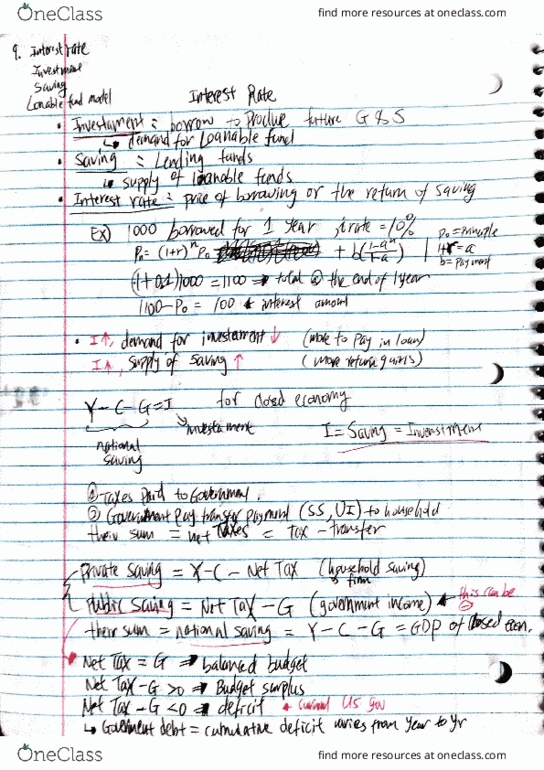 OneClass
find more resources at oneclass.com
9. Interest rate
Investment
Saving
Loanable fund model
Interest Rate
• Investament = borrow to produce future G & S
↳ demand for loanable fund
• Saving = Lending funds
↳ supply of loanable funds
• Interest rate = price of borrowing or the return of saving
EX) 1000 borrowed for 1 year irate = 10%
Pn = (1+r)^n P0 + b(1-a^n / 1-a) | P0 = Principle
1+r = a
b = payment
(1+0.1)1000 = 1100 → total @ the end of 1 year
1100 - P0 = 100 ← interest amount
• I↑, demand for investament ↓ (more to pay in loan)
I↑, supply of saving ↑ (more return gains)
Y-C-G=I for closed economy
↘ investament
national saving
I = Saving = Investment
① Taxes paid to Government.
② Government pay transfer payment (SS, UI) to household
their sum = net Taxes = Tax - transfer
Private saving = Y-C-Net Tax (household saving)
& firm
Public saving = Net Tax - G (government income) ← this can be ⊖
their sum = national saving = Y-C-G = GDP of closed econ.
Net Tax = G → balanced budget
Net Tax-G >0 → Budget surplus
Net Tax - G <0 → deficit ← current US gov
↳ Government debt = cumulative deficit varies from year to yr
OneClass
find more resources at oneclass.com